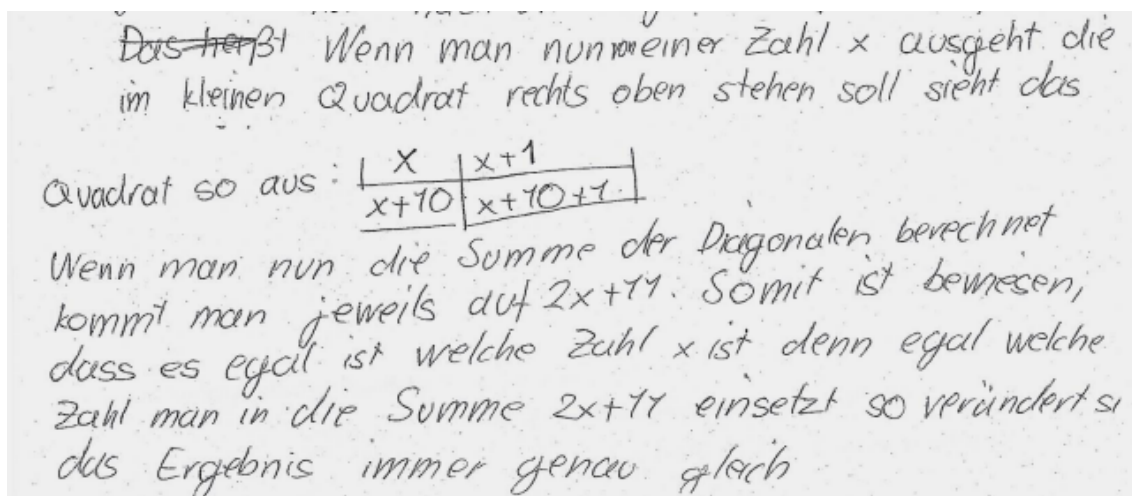 Das heißt Wenn man nun von einer Zahl x ausgeht die
im kleinen Quadrat rechts oben stehen soll sieht das
Quadrat so aus: x x+1
x+10 x+10+1
Wenn man nun die Summe der Diagonalen berechnet
kommt man jeweils auf 2x+11. Somit ist bewiesen,
dass es egal ist welche Zahl x ist denn egal welche
Zahl man in die Summe 2x+11 einsetzt so verändert si
das Ergebnis immer genau gleich